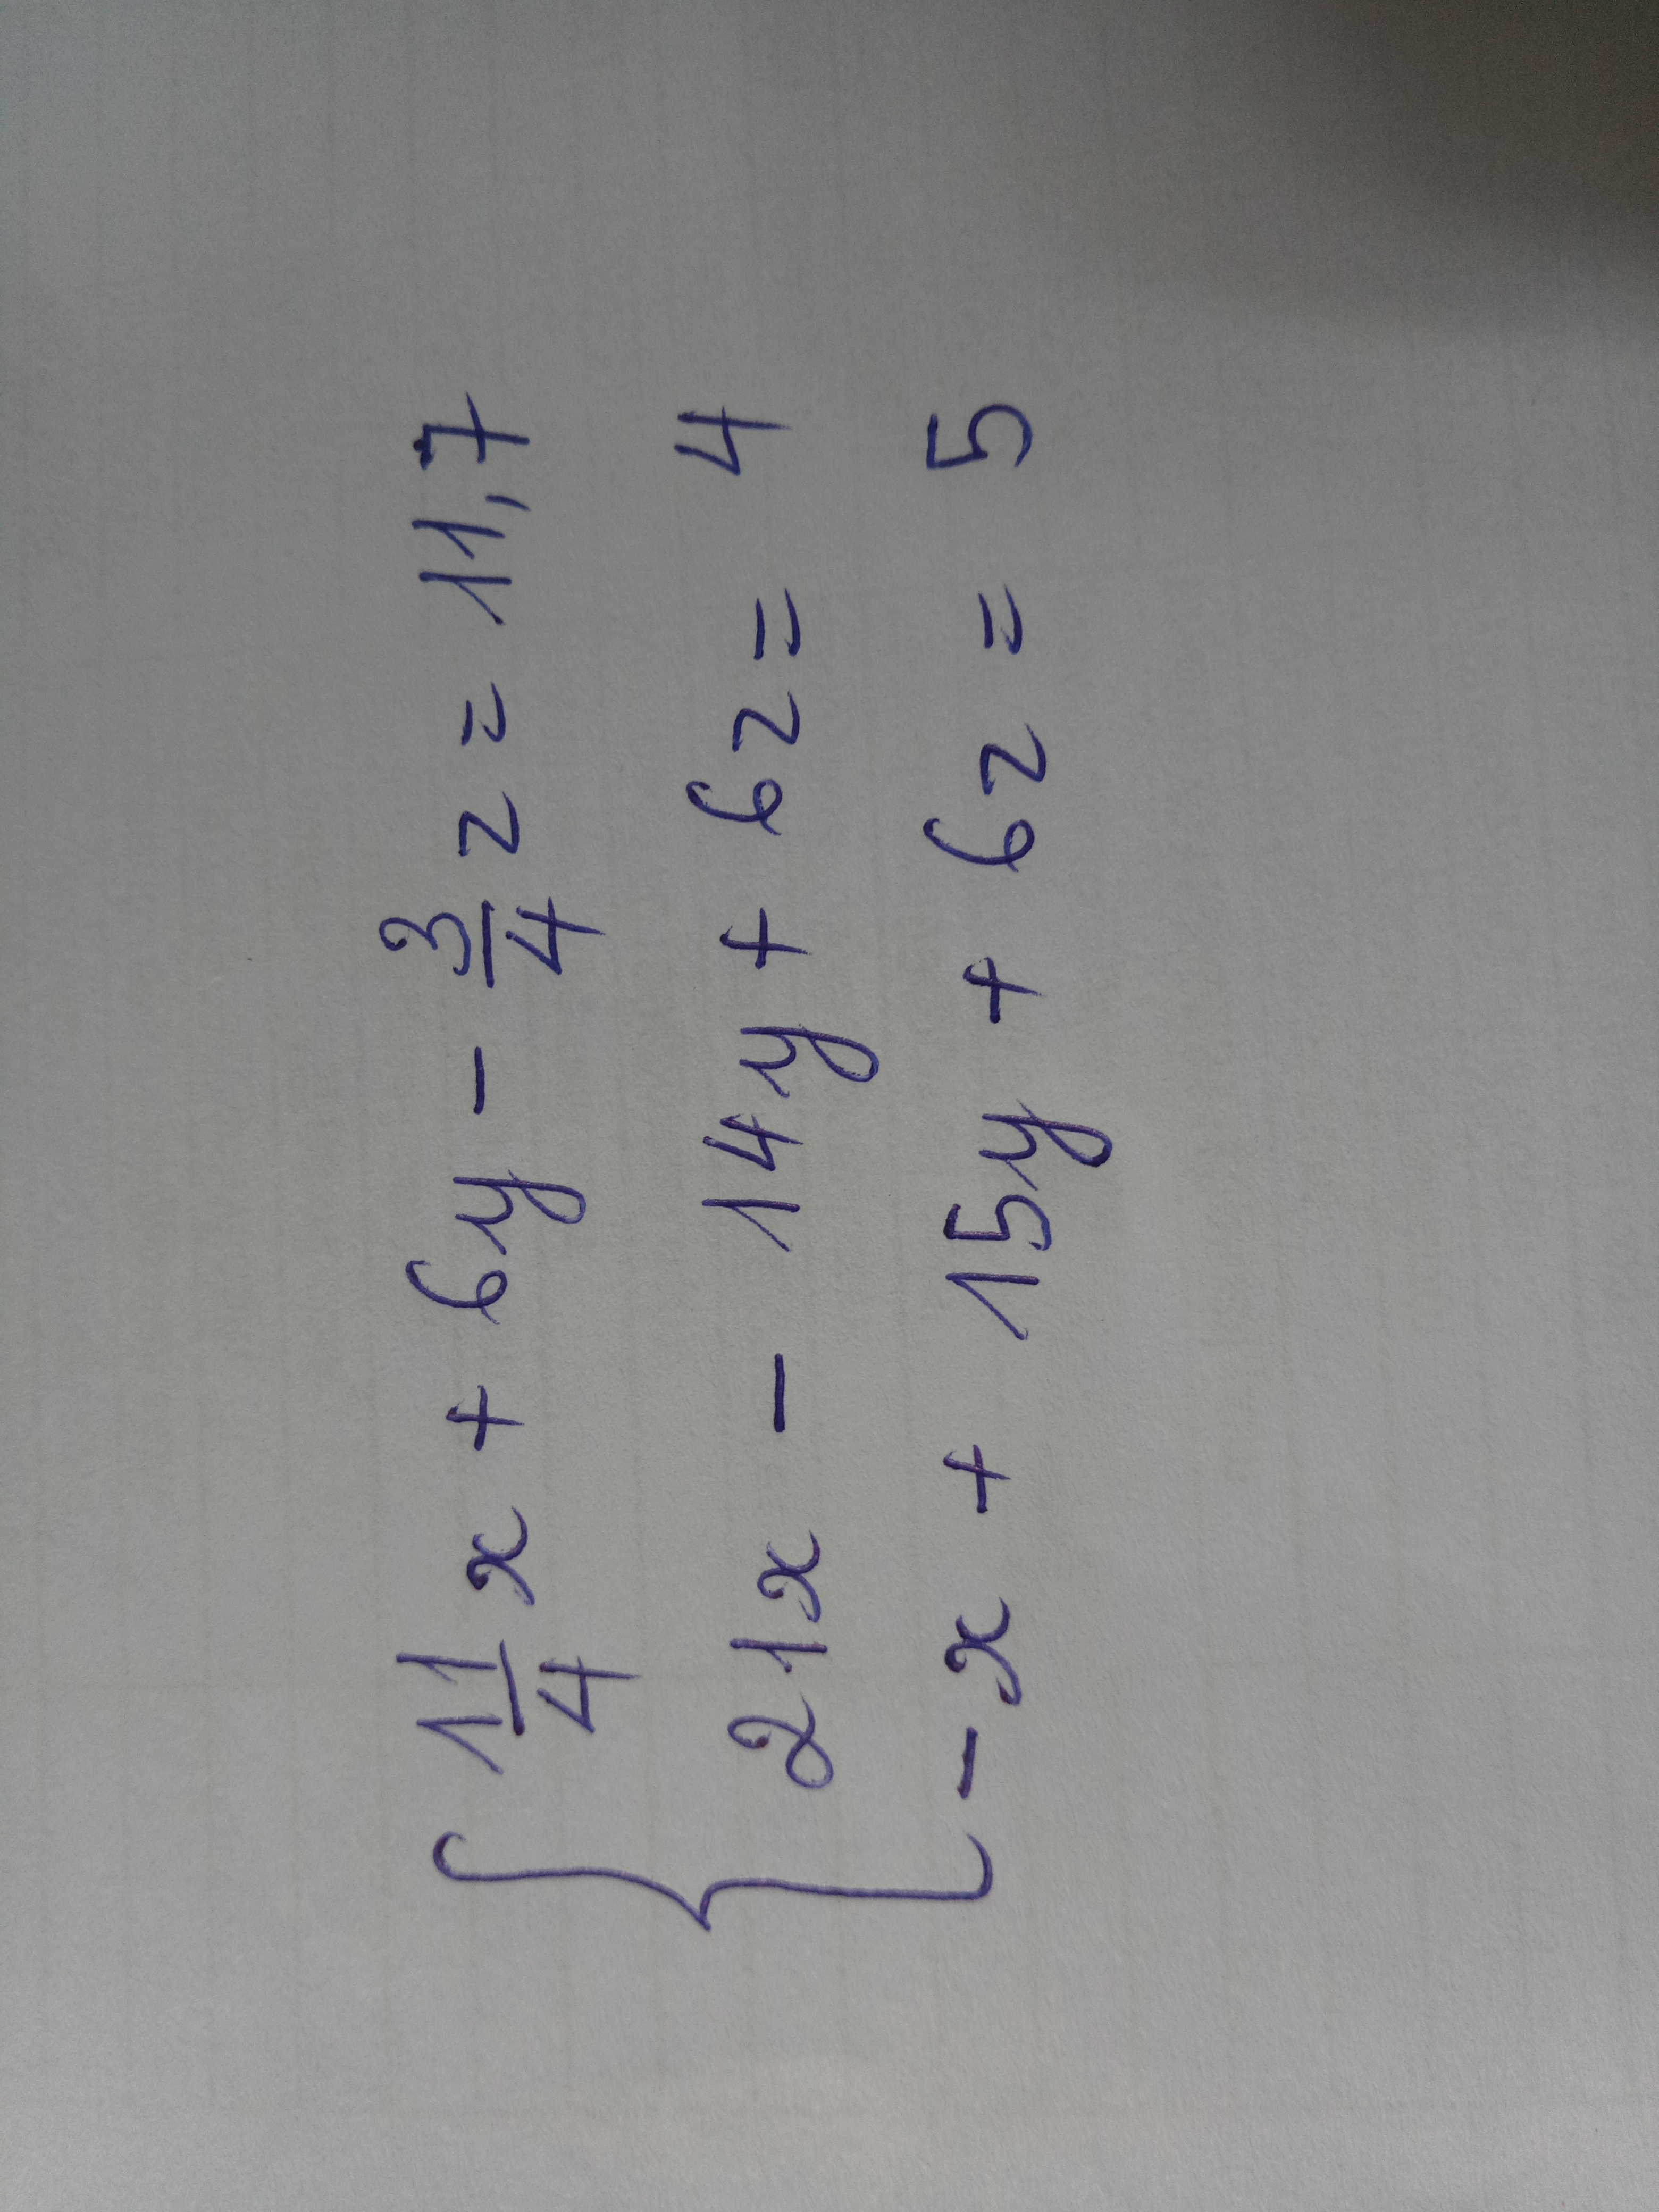 11/4 x + 6y - 3/4 z = 11,7
21x - 14y + 6z = 4
-x + 15y + 6z = 5